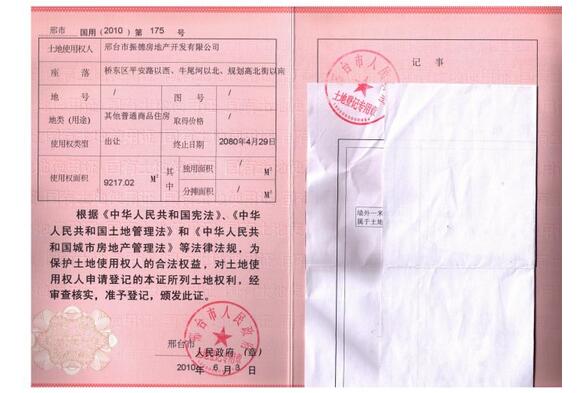 邢市 国用(2010)第 175 号
土地使用权人 邢台市振德房地产开发有限公司
座 落 桥东区平安路以西、牛尾河以北、规划高北街以南
地 号 / 图 号 /
地类(用途) 其他普通商品住房 取得价格 /
使用权类型 出让 终止日期 2080年4月29日
使用权面积 9217.02 M² 其中 独用面积 / M²
分摊面积 / M²
根据《中华人民共和国宪法》、《中华
人民共和国土地管理法》和《中华人民共
和国城市房地产管理法》等法律法规，为
保护土地使用权人的合法权益，对土地使
用权人申请登记的本证所列土地权利，经
审查核实，准予登记，颁发此证。
邢台市
人民政府（章）
2010年 6月 3日
邢台市人民政府
土地登记专用章
记 事
邢台市人民政府
土地登记专用章
墙外一米
属于土地